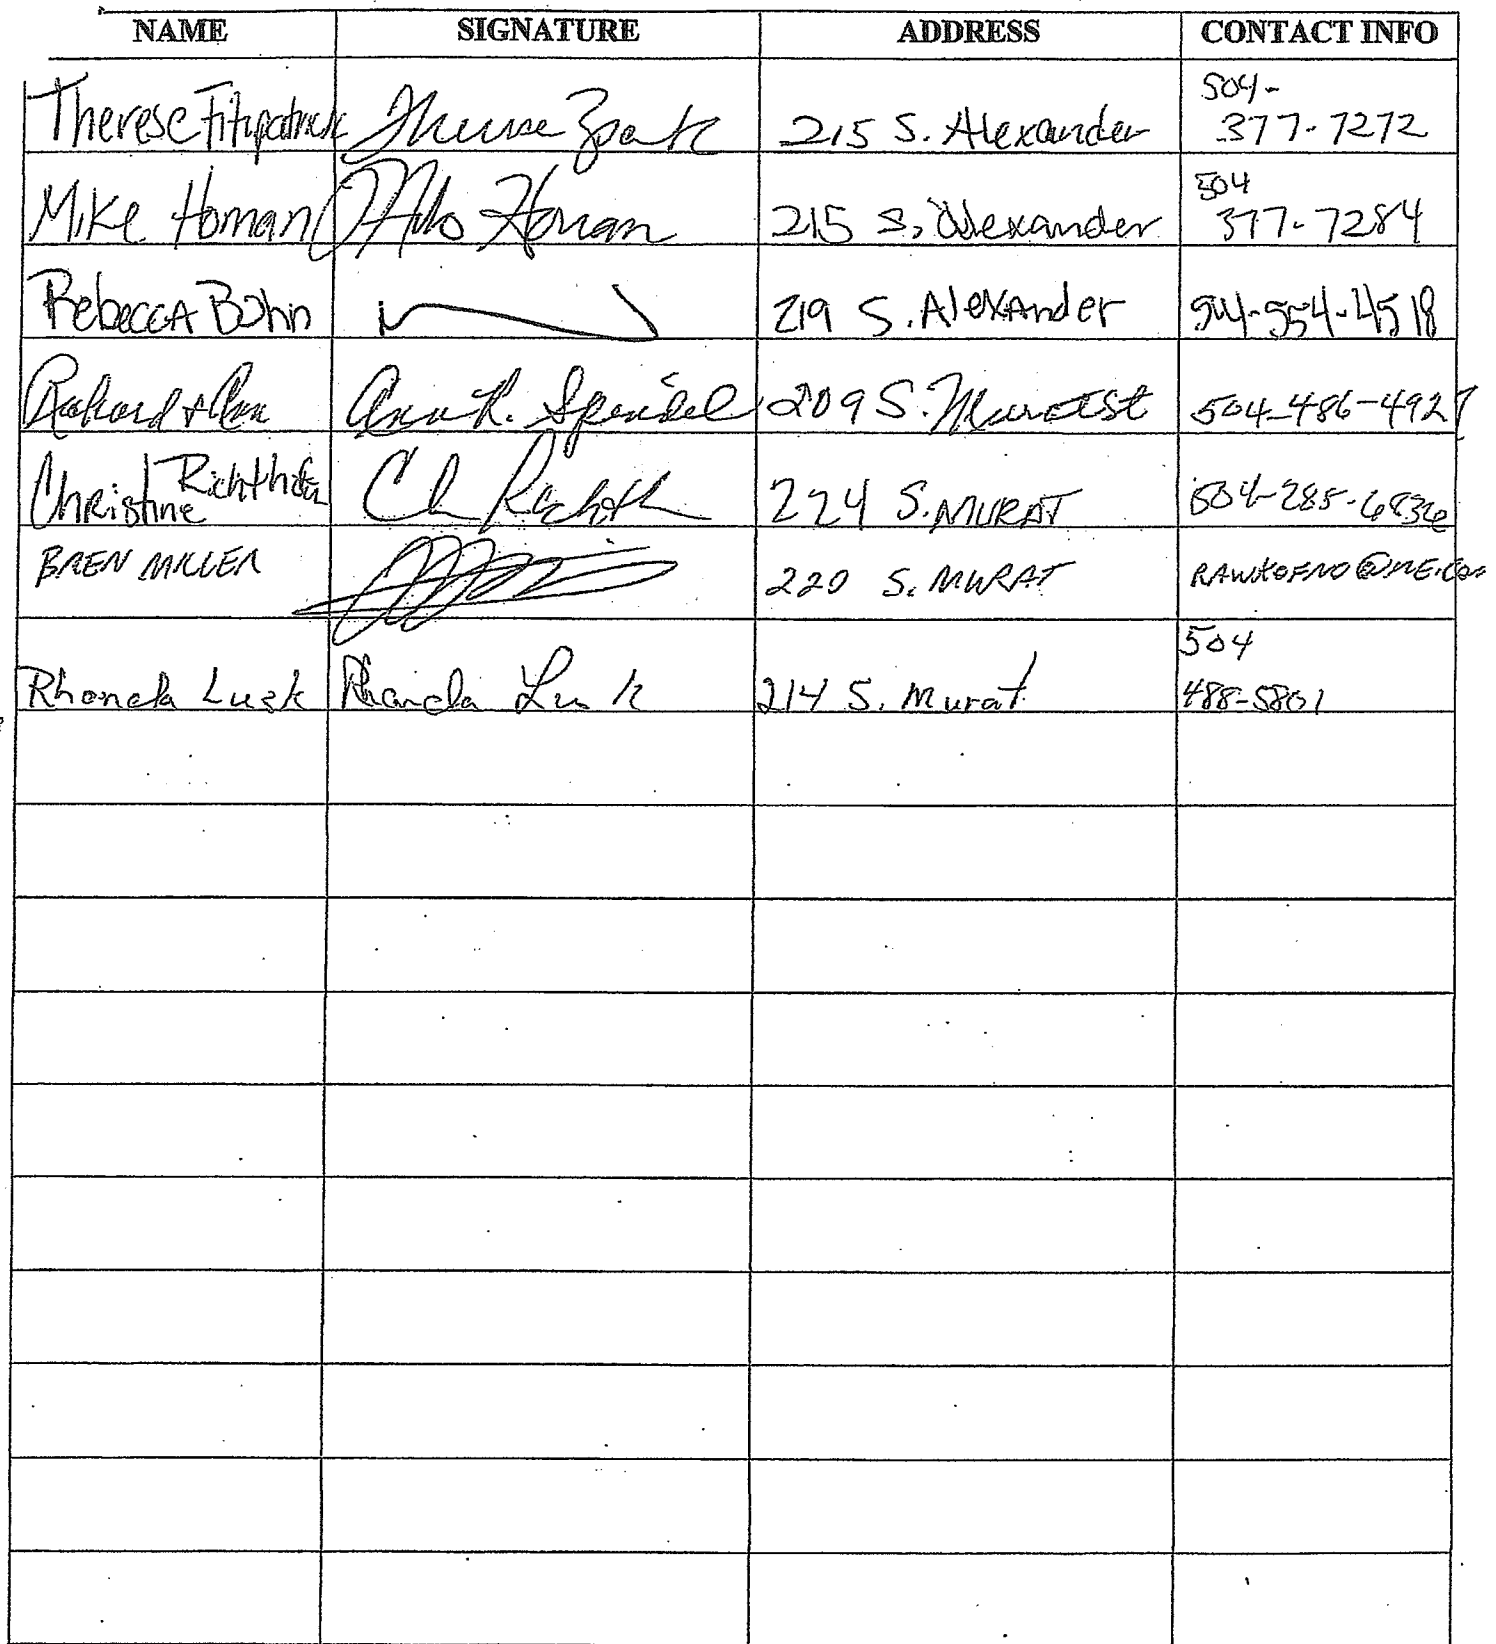 NAME SIGNATURE ADDRESS CONTACT INFO
Therese Fitzpatrick 215 S. Alexander 504-
377-7272
Mike Homan Homan 215 S. Alexander 504
377-7284
Rebecca Bohn 219 S. Alexander 504-554-4518
Richard & Ann Ann R. Speidel 209 S. Murat St 504-486-4927
Christine 224 S. MURAT 504-285-6836
BREN MILLER 220 S. MURAT
Rhonda Lusk Rhonda Lusk 214 S. Murat 504
488-5801